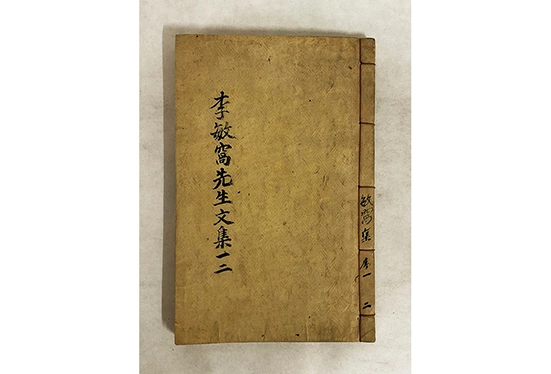 李敏窩先生文集一二
敏窩集 卷一 二